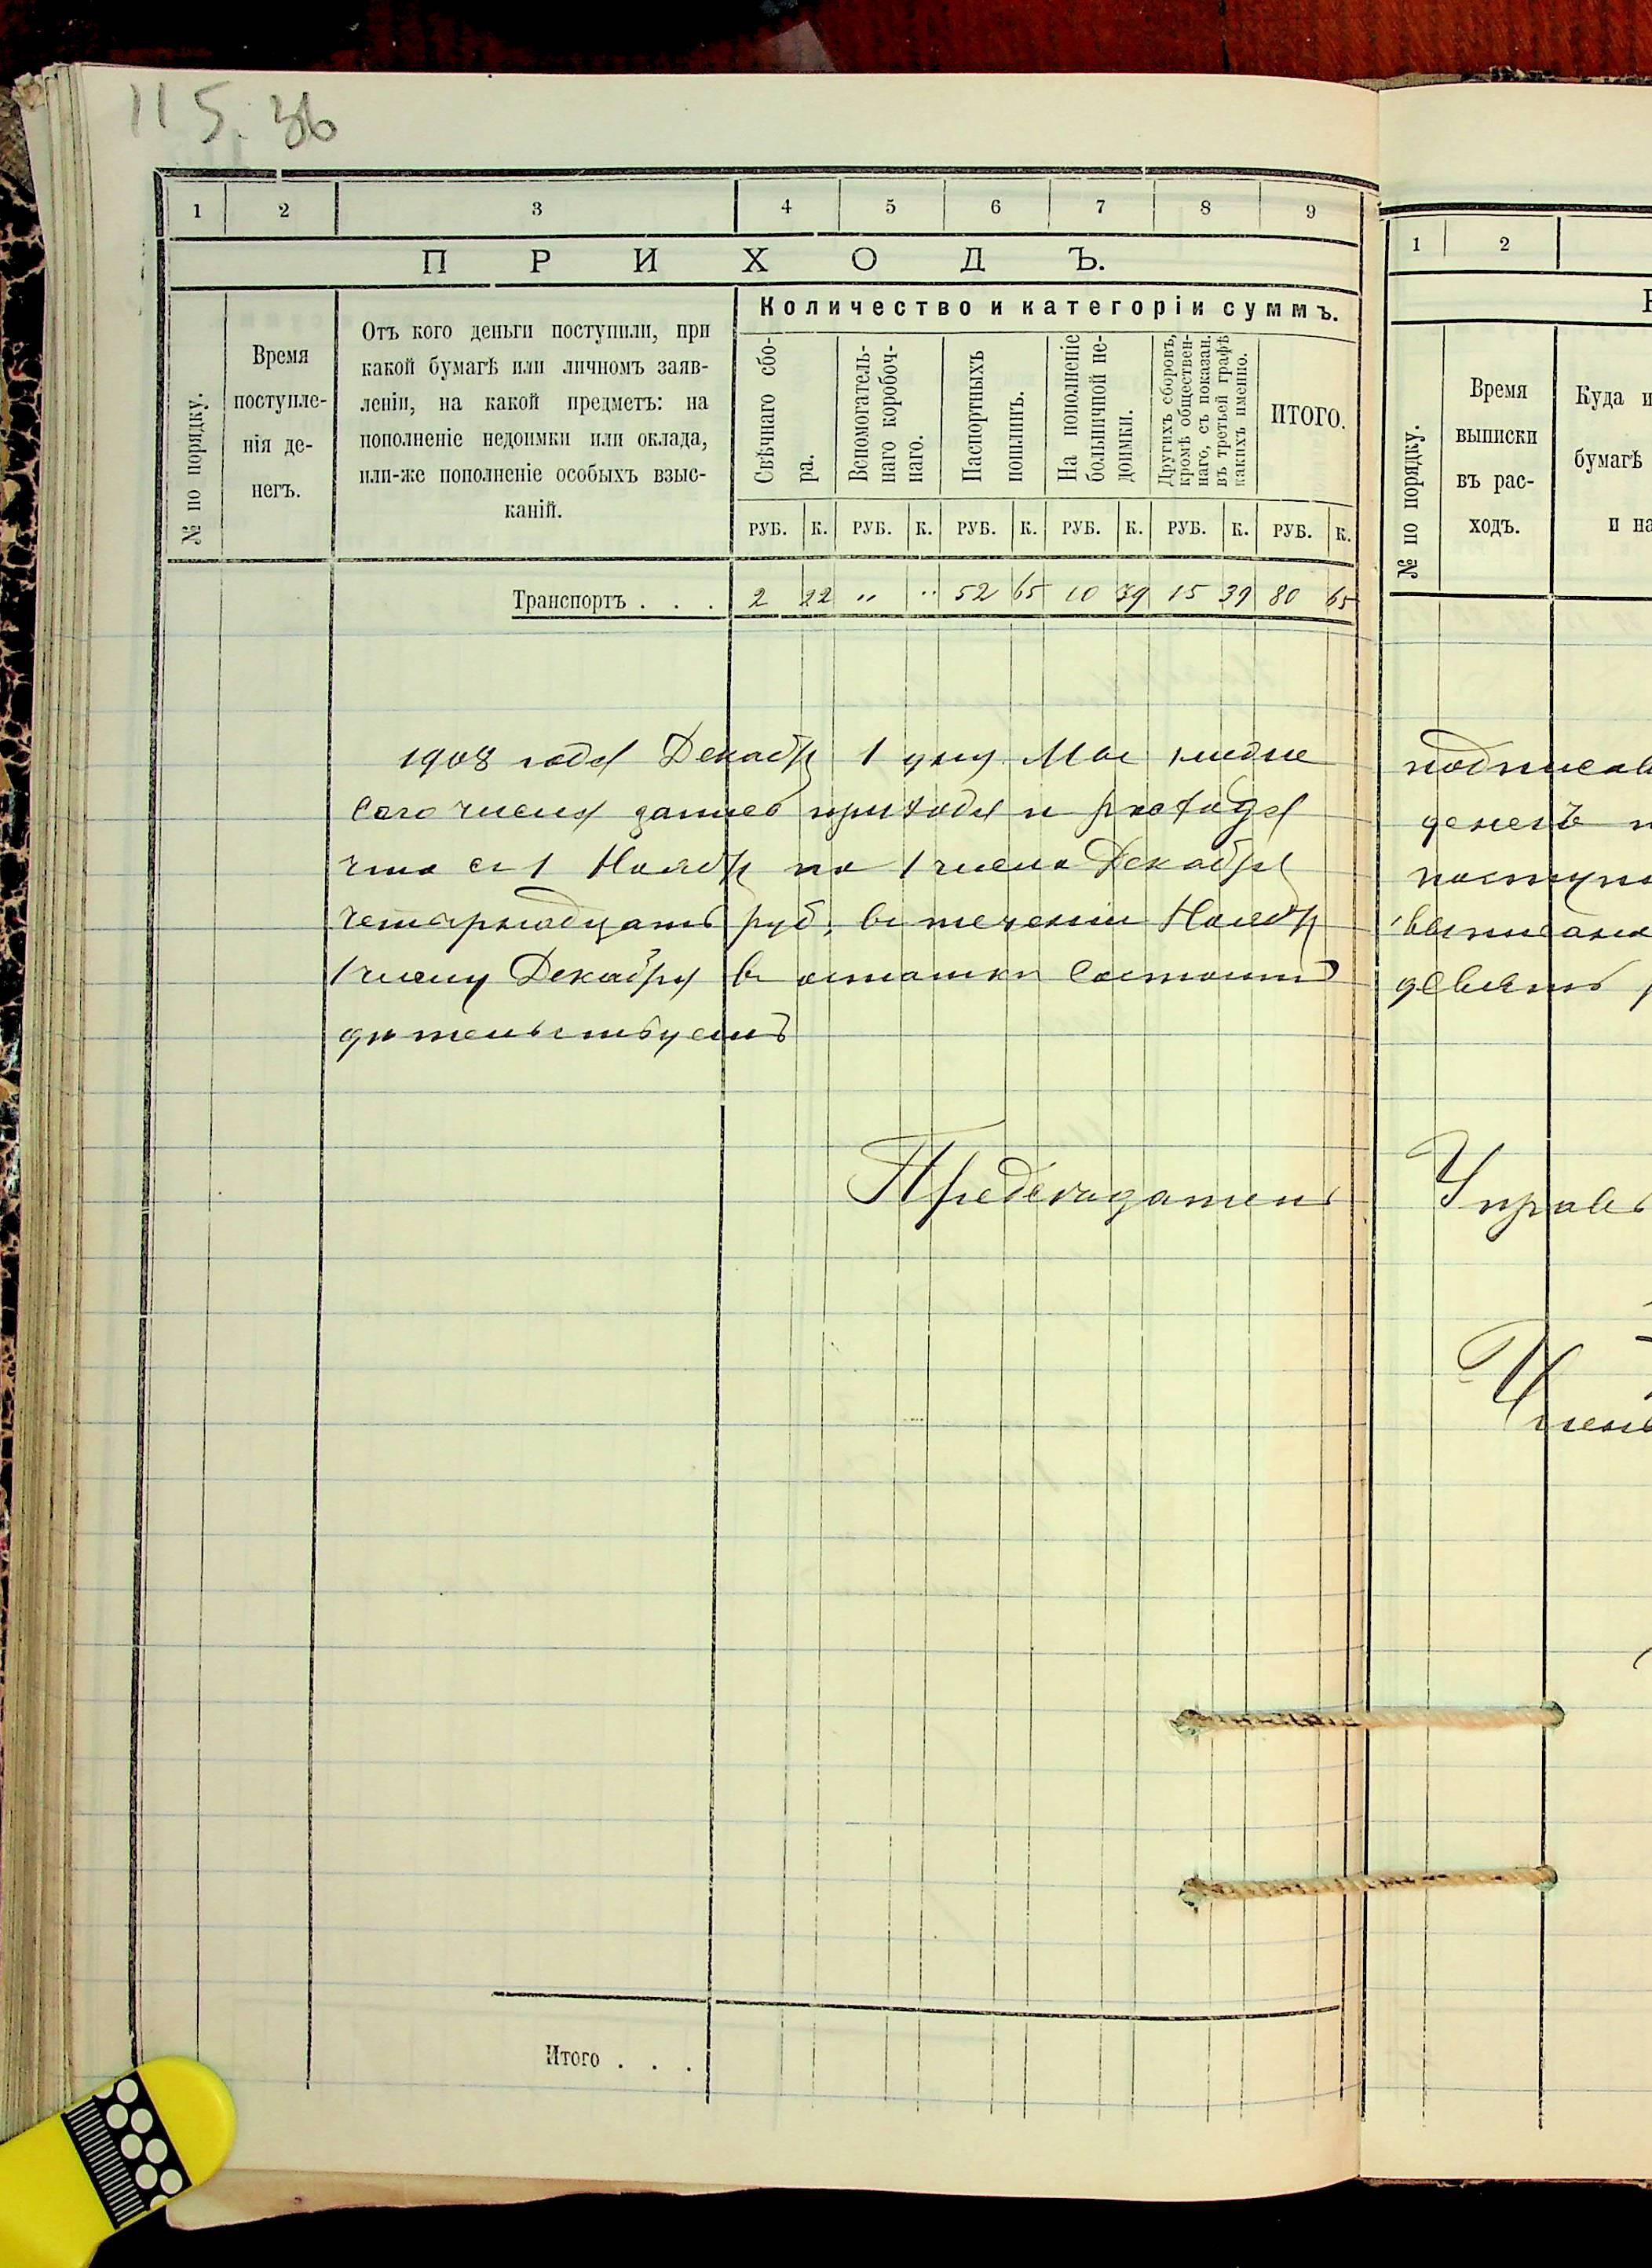 115. 36
1 2 3 4 5 6 7 8 9
ПРИХОДЪ.
№ по порядку.
Время
поступле-
нія де-
негъ.
Отъ кого деньги поступили, при
какой бумагѣ или личномъ заяв-
леніи, на какой предметъ: на
пополненіе недоимки или оклада,
или-же пополненіе особыхъ взыс-
каній.
Количество и категоріи суммъ.
Свѣчнаго сбо-
ра.
Вспомогатель-
наго коробоч-
наго.
Паспортныхъ
пошлинъ.
На пополненіе
больничной не-
доимки.
Другихъ сборовъ,
кромѣ обществен-
наго, съ показан.
въ третьей графѣ
какихъ именно.
ИТОГО.
РУБ. К. РУБ. К. РУБ. К. РУБ. К. РУБ. К. РУБ. К.
Транспортъ . . . 2 22 " " 52 65 10 39 15 39 80 65
1908 года Декабр 1 дня Мы нидпе
сего числа приходя и расхода
что съ 1 Ноябр по 1 число Декабря
четырнадцать руб. въ теченіи Ноябр
1 числу Декабря въ остатки состоитъ
дительствуемъ
Председатель
Итого . . .
1 2
№ по порядку.
Время
выписки
въ рас-
ходъ.
Куда и
бумагѣ
и на
подписав
денегъ
поступи
выписано
девять
Управ
Член